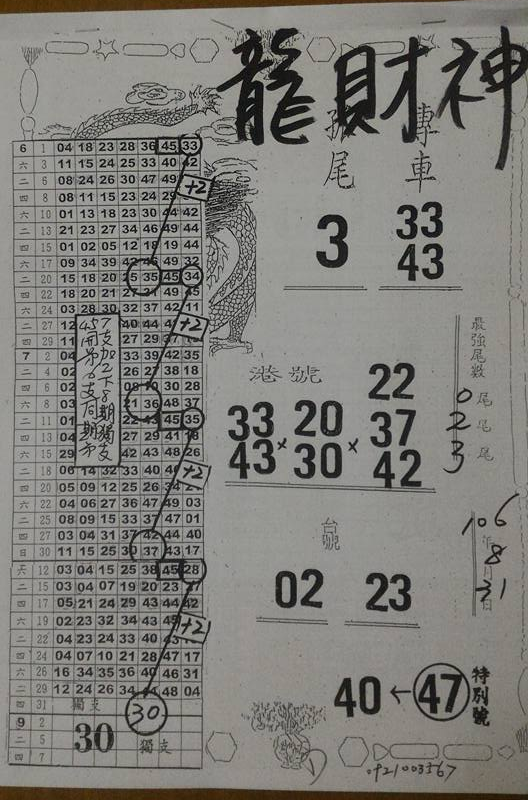 龍財神
獨尾 專車
3
33
43
港號
33 × 20 × 22
43 30 37
42
最強尾數
0尾
2尾
3尾
台號
02 23
106年
8月
31日
40←47 特別號
0921003567
6 1 04 18 23 28 36 45 33
六 3 11 15 24 25 33 40 42
+2
二 6 08 24 26 30 47 49
四 8 08 11 15 23 24
六 10 01 13 18 23 30 44 42
二 13 21 23 27 34 46 49 44
四 15 01 02 05 12 18 19 44
六 17 09 34 39 42 49 32
二 20 15 18 20 25 35 45 34
四 22 18 20 21 27 31 49
六 24 03 28 30 32 37 42 11
+2
二 27 12
四 29 11
7支加2下8期獨支
45開第6支同期市
7 2 04 33 39 42 35
二 4 02 26 27 38 18
四 6 02 10 30 28
六 8 03 21 36 48 37
二 11 01 22 43 45 35
四 13 04 27 29 41
六 15 29 42 43 48 26
二 18 06 14 32 33 40
+2
四 20 05 09 12 25 26 34
六 22 04 06 27 36 47 49 03
二 25 08 09 15 33 37 47 01
四 27 03 04 31 37 42 44 40
日 30 11 15 25 30 37 43 17
12 03 04 15 25 38 45 28
二 15 03 04 07 19 20 23
四 17 05 21 24 29 43 44 42
六 19 02 23 32 34 43 45
+2
二 22 04 23 24 33 40 43
四 24 04 07 10 21 28 47 17
六 26 16 34 35 36 40 46 31
二 29 12 24 26 34 48 04
四 31 獨支 30
9 2
二 5 30 獨支
四 7